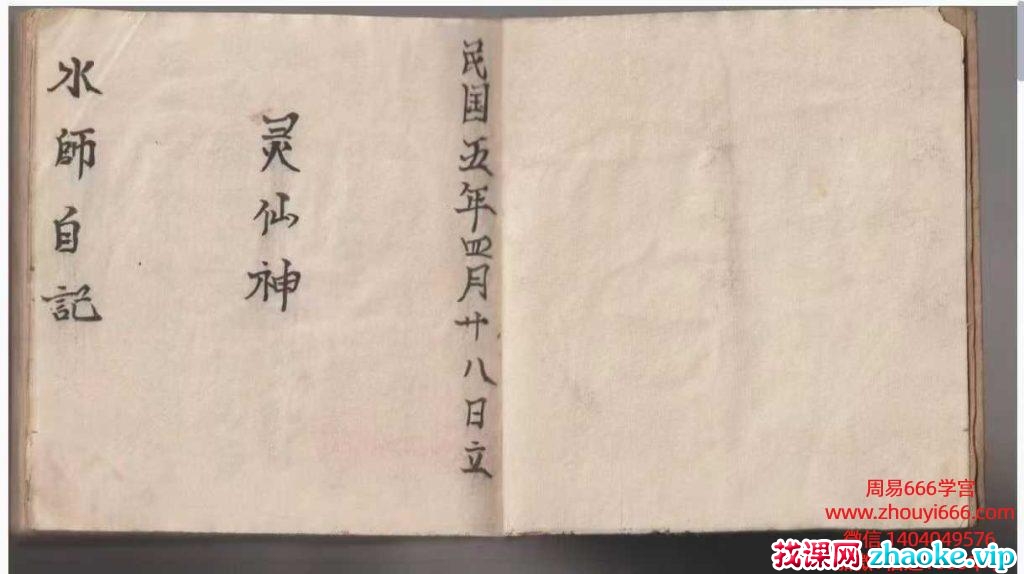 民国五年四月廿八日立
灵仙神
水師自記
周易666学宫
www.zhouyi666.com
微信 1404049576
找课网 zhaoke.vip